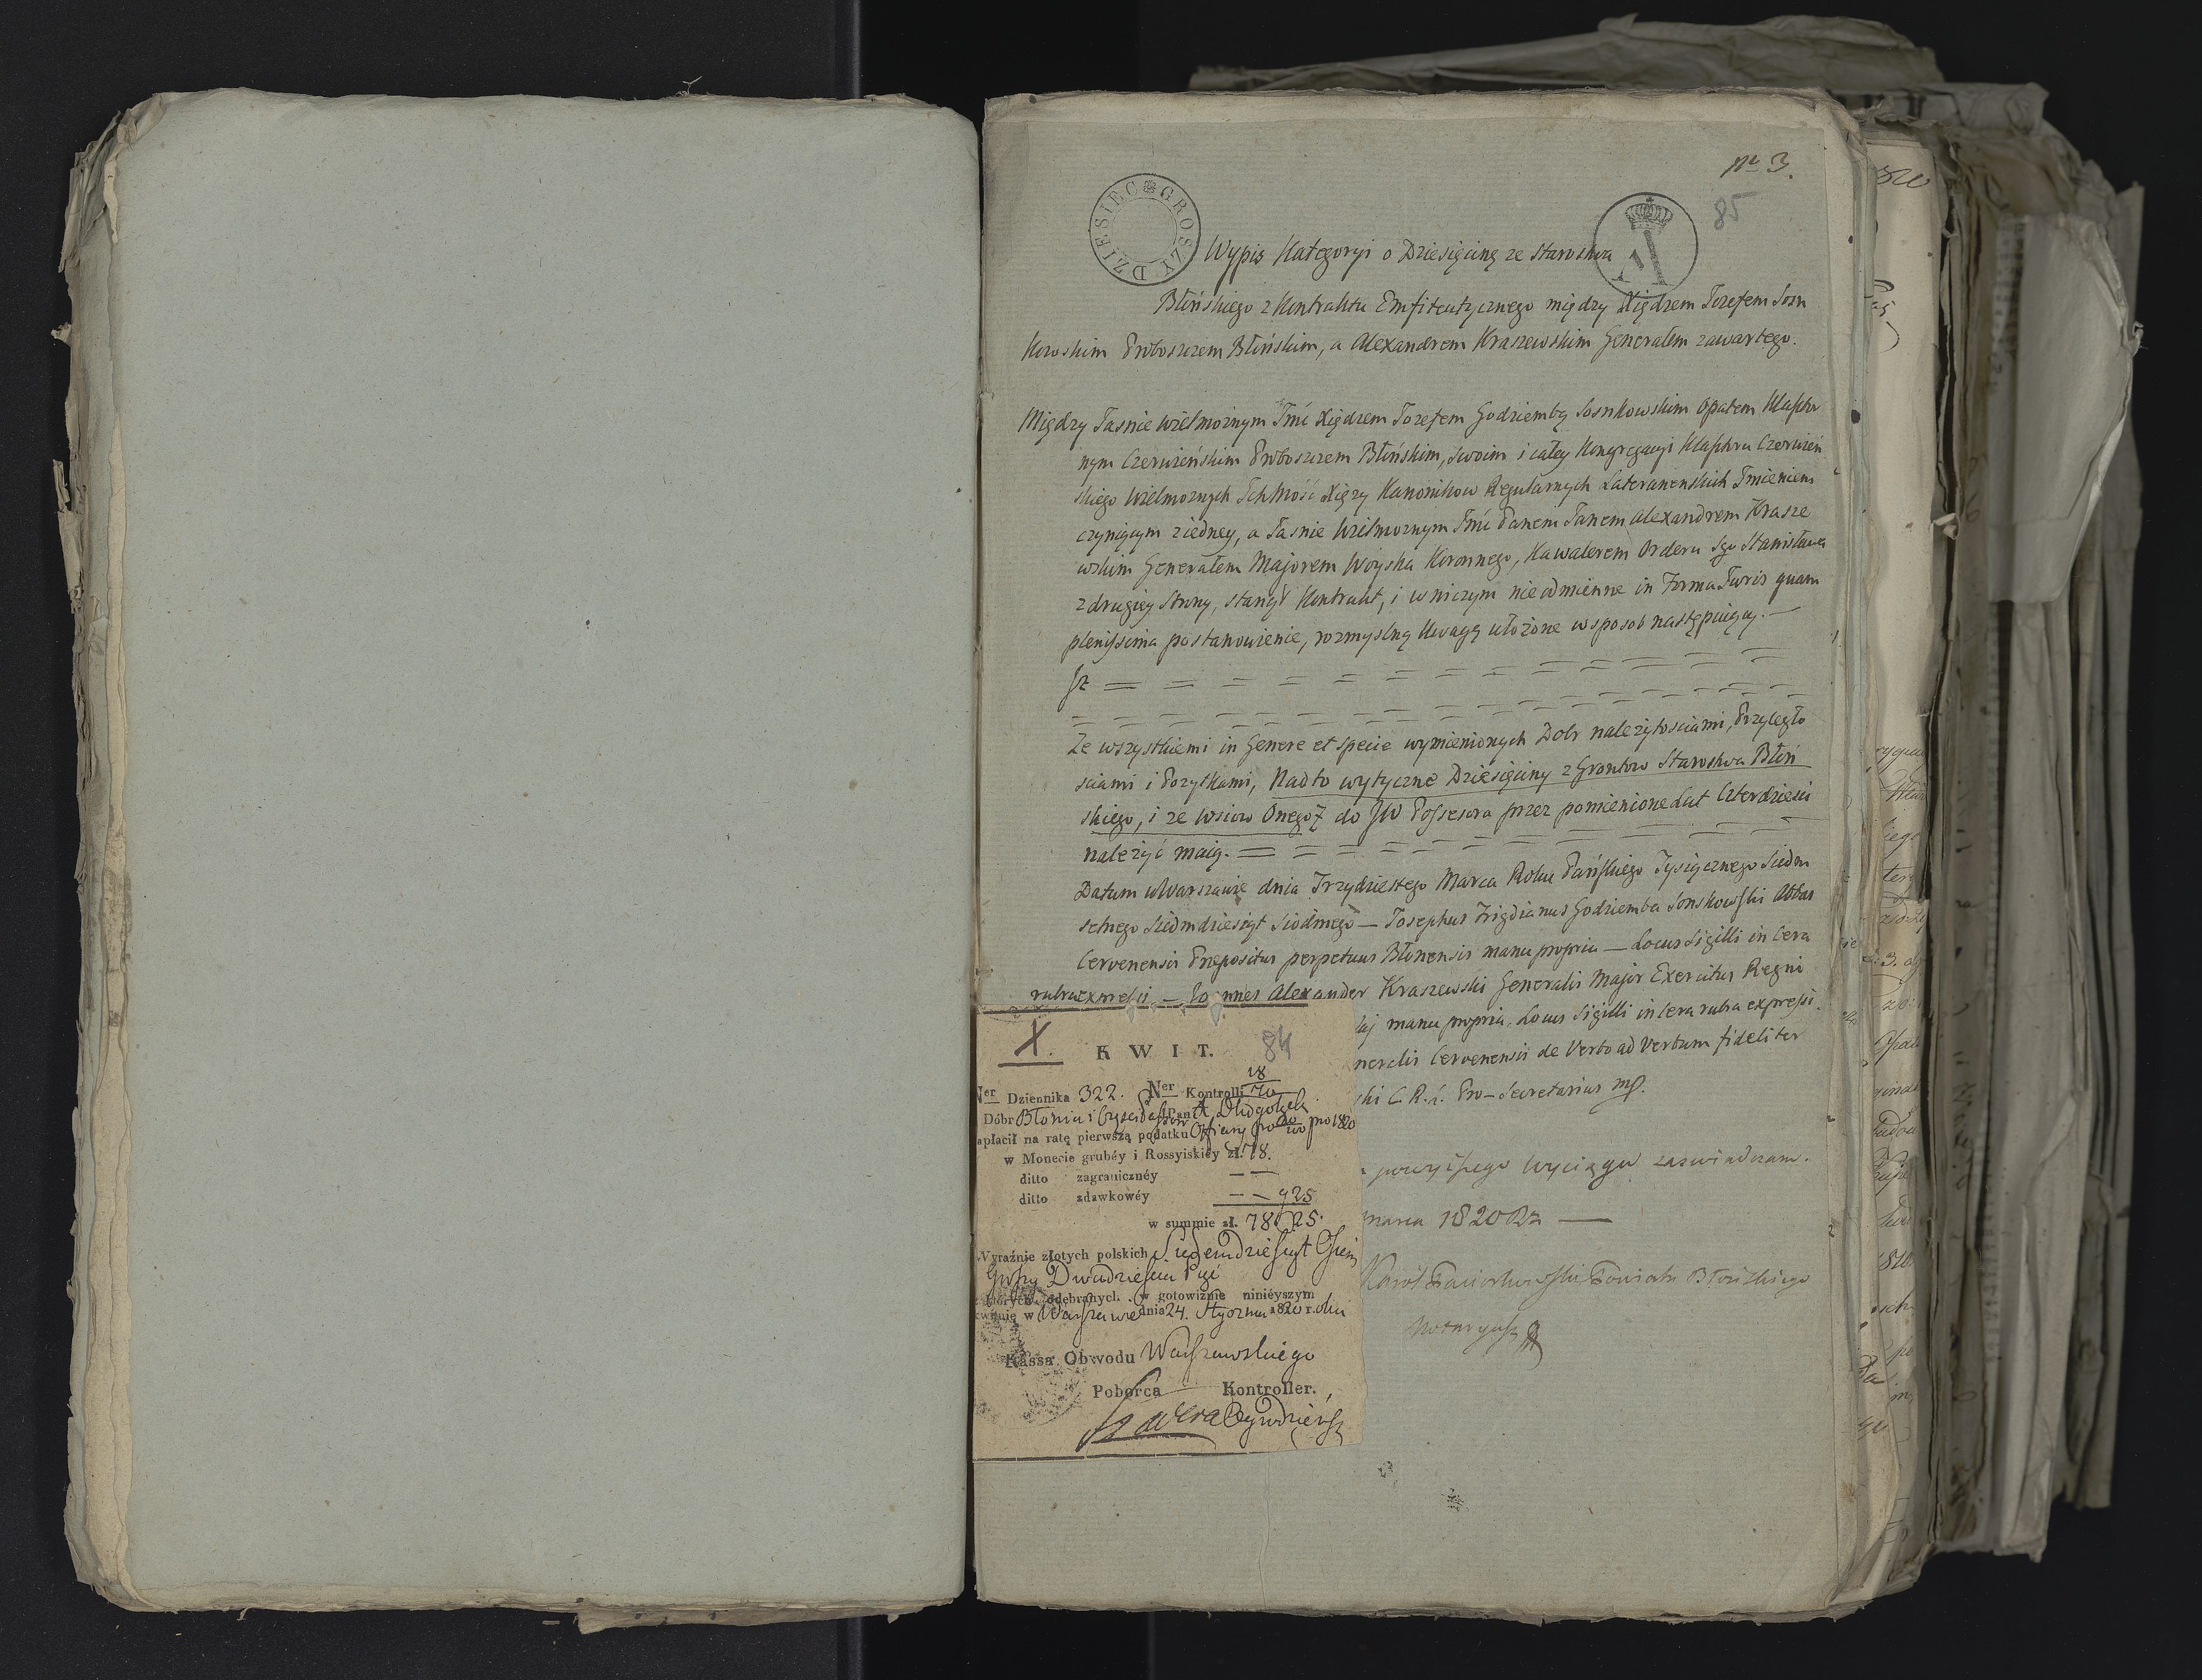 nr 3.
85
DZIESIEC GROSZY
Wypis Kategoryi o Dziesięcinę ze Starostwa
Błińskiego z Kontraktu Emfiteutycznego między Xiędzem Jozefem Sosn
kowskim Proboszczem Błińskim, a Alexandrem Kraszewskim Generałem zawartego.
Między Jasnie Wielmożnym Jmć Xiędzem Jozefem Godziembą Sosnkowskim Opatem Klasztor
nym Czerwieńskim Proboszczem Błińskim, swoim i całey Kongregacyi Klasztoru Czerwień
skiego Wielmożnych Ichmość Xięży Kanonikow Regularnych Lateranenskich Imieniem
czyniącym z iedney, a Jasnie Wielmożnym Jmć Panem Janem Alexandrem Krasze
wskim Generałem Majorem Woyska Koronnego, Kawalerem Orderu Sgo Stanisława
z drugiey Strony, stanął Kontrakt, i w niczym nieodmienne in Forma Juris quam
plenissima postanowienie, rozmyslną Uwagą ułożone w sposob następuiący. —
Iż = = = = = = = = = = = =
Ze wszystkiemi in Genere et Specie wymienionych Dobr należytosciami, Przyległo
sciami i Pożytkami, Nadto wytyczne Dziesięciny z Grontow Starostwa Błoń
skiego, i ze wsiow Onegoż do JW Possesora przez pomienione Lat Czterdziesci
należyć maią. = = = = = = = =
Datum w Warszawie dnia Trzydziestego Marca Roku Pańskiego Tysiącznego Siedm
setnego Siedmdziesiąt Siodmego — Josephus Frigdianus Godziemba Sonskowski Abbas
Cervenensis Praepositus perpetuus Błonensis manu propria — Locus Sigilli in Cera
rubra expressi — Joannes Alexander Kraszewski Generalis Major Exercitus Regni
manu propria. Locus Sigilli in cera rubra expressi.
neralis Cervenensis de Verbo ad Verbum fideliter
ski C. R. L. Pro-Secretarius mp.
powyższego wyciągu zaswiadczam.
marca 1820 Rz —
Karol Powiatu Błońskiego
Notaryusz
X. KWIT. 84
Ner Dziennika 322. Ner Kontrolli 18/70
Dóbr Błonia i Pan
apłacił na ratę pierwszą podatku Ofiary pro 1820
w Monecie grubéy i Rossyiskiéy zł. 78.
ditto zagranicznéy — —
ditto zdawkowéy — — 925
w summie zł. 78 25.
Wyraźnie złotych polskich Siedemdziesiąt Osiem
Groszy Dwadziescia Pięć
których odebranych w gotowiźnie niniéyszym
kwituię w Warszawie dnia 24. Stycznia 1820 roku
Kassa Obwodu Warszawskiego
Poborca Kontroller.